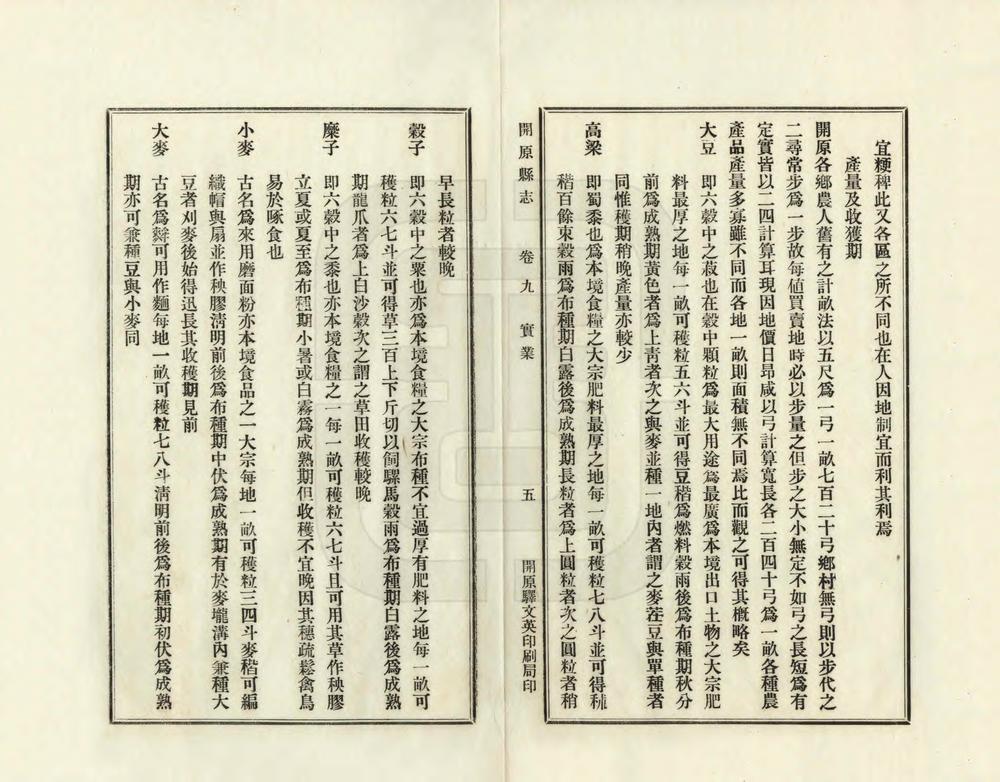 宜粳稗此又各區之所不同也在人因地制宜而利其利焉
產量及收獲期
開原各鄉農人舊有之計畝法以五尺爲一弓一畝七百二十弓鄉村無弓則以步代之
二尋常步爲一步故每値買賣地時必以步量之但步之大小無定不如弓之長短爲有
定實皆以二四計算耳現因地價日昂咸以弓計算寬長各二百四十弓爲一畝各種農
產品產量多寡雖不同而各地一畝則面積無不同焉比而觀之可得其槪略矣
大豆 即六穀中之菽也在穀中顆粒爲最大用途爲最廣爲本境出口土物之大宗肥
料最厚之地每一畝可穫粒五六斗並可得豆稭爲燃料穀雨後爲布種期秋分
前爲成熟期黃色者爲上靑者次之與麥並種一地內者謂之麥茬豆與單種者
同惟穫期稍晚產量亦較少
高粱 即蜀黍也爲本境食糧之大宗肥料最厚之地每一畝可穫粒七八斗並可得秫
稭百餘束穀雨爲布種期白露後爲成熟期長粒者爲上圓粒者次之圓粒者稍
開原縣志 卷九 實業 五 開原驛文英印刷局印
早長粒者較晚
穀子 即六穀中之粟也亦爲本境食糧之大宗布種不宜過厚有肥料之地每一畝可
穫粒六七斗並可得草三百上下斤切以飼騾馬穀雨爲布種期白露後爲成熟
期龍爪者爲上白沙穀次之謂之草田收穫較晚
糜子 即六穀中之黍也亦本境食糧之一每一畝可穫粒六七斗且可用其草作秧膠
立夏或夏至爲布種期小暑或白霧爲成熟期但收穫不宜晚因其穗疏鬆禽鳥
易於啄食也
小麥 古名爲來用磨面粉亦本境食品之一大宗每地一畝可穫粒三四斗麥稭可編
織帽與扇並作秧膠淸明前後爲布種期中伏爲成熟期有於麥壠溝內兼種大
豆者刈麥後始得迅長其收穫期見前
大麥 古名爲麰可用作麵每地一畝可穫粒七八斗淸明前後爲布種期初伏爲成熟
期亦可兼種豆與小麥同